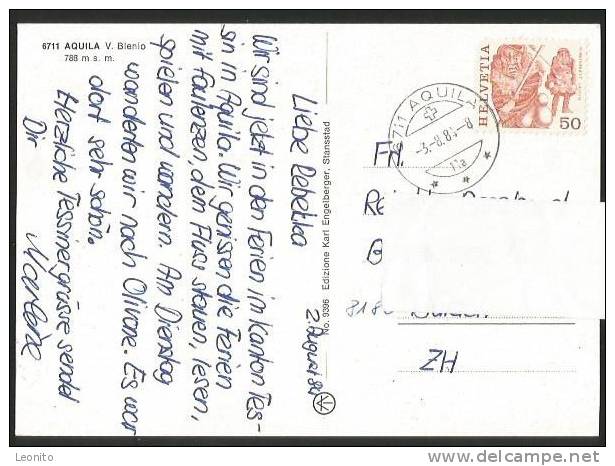 6711 AQUILA V. Blenio
788 m s. m.
2. August 84
Liebe Rebekka
Wir sind jetzt in den Ferien im Kanton Tes-
sin in Aquila. Wir genissen die Ferien
mit Faulenzen, dem Fluss stauen, lesen,
spielen und wandern. Am Dienstag
wanderten wir nach Olivone. Es war
dort sehr schön.
Herzliche Tessinergrüsse sendet
Dir
No. 9396 Edizione Karl Engelberger, Stansstad
HELVETIA
50
6711 AQUILA
-3.-8.84-8
Frl.
ZH
Leonito
delcampe.net